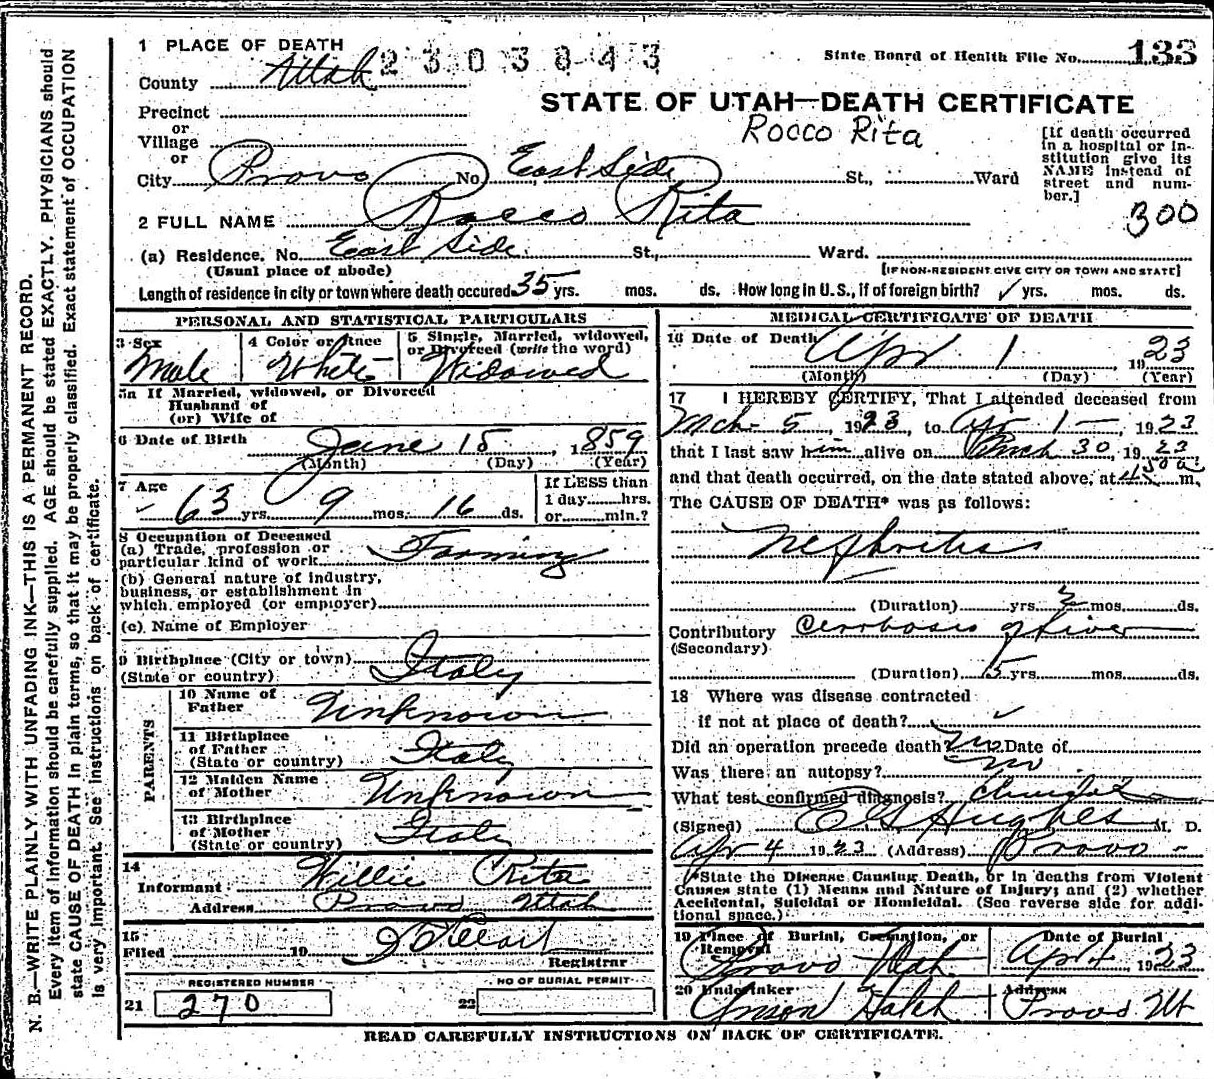 1 PLACE OF DEATH
2303843
State Board of Health File No. 133
County Utah
STATE OF UTAH—DEATH CERTIFICATE
Precinct
Rocco Rita
or
Village
or
City Provo No. East Side St., Ward
[If death occurred in a hospital or institution give its NAME instead of street and number.]
300
2 FULL NAME Rocco Rita
(a) Residence. No. East Side. St., Ward.
(Usual place of abode)
[IF NON-RESIDENT GIVE CITY OR TOWN AND STATE]
Length of residence in city or town where death occured 35 yrs. mos. ds. How long in U.S., if of foreign birth? ✓ yrs. mos. ds.
PERSONAL AND STATISTICAL PARTICULARS
3 Sex
Male
4 Color or Race
White
5 Single, Married, widowed, or Divorced (write the word)
Widowed
5a If Married, widowed, or Divorced
Husband of
(or) Wife of
6 Date of Birth June 15, 1859
(Month) (Day) (Year)
7 Age
63 yrs. 9 mos. 16 ds.
If LESS than
1 day hrs.
or min.?
8 Occupation of Deceased
(a) Trade, profession or
particular kind of work Farming
(b) General nature of industry,
business, or establishment in
which employed (or employer)
(c) Name of Employer
9 Birthplace (City or town)
(State or country) Italy
PARENTS
10 Name of
Father Unknown
11 Birthplace
of Father
(State or country) Italy
12 Maiden Name
of Mother Unknown
13 Birthplace
of Mother
(State or country) Italy
14
Informant Willie Rita
Address Provo Utah
15
Filed 19
Registrar
REGISTERED NUMBER
21 270
NO OF BURIAL PERMIT
22
MEDICAL CERTIFICATE OF DEATH
16 Date of Death Apr 1 1923
(Month) (Day) (Year)
17 I HEREBY CERTIFY, That I attended deceased from
Mch 5, 1923, to Apr 1 — , 1923
that I last saw him alive on March 30, 1923
and that death occurred, on the date stated above, at m.
The CAUSE OF DEATH* was as follows:
Nephritis
(Duration) yrs. mos. ds.
Contributory Cerrhosis of Liver
(Secondary)
(Duration) 5 yrs. mos. ds.
18 Where was disease contracted
if not at place of death? ✓
Did an operation precede death? No Date of
Was there an autopsy? no
What test confirmed diagnosis?
(Signed) Hughes M. D.
Apr 4 1923 (Address) Provo -
*State the Disease Causing Death, or in deaths from Violent
Causes state (1) Means and Nature of Injury; and (2) whether
Accidental, Suicidal or Homicidal. (See reverse side for addi-
tional space.)
19 Place of Burial, Cremation, or
Removal
Provo Utah
Date of Burial
Apr 4, 1923
20 Undertaker
Anson Hatch
Address
Provo Ut
READ CAREFULLY INSTRUCTIONS ON BACK OF CERTIFICATE.
N. B.—WRITE PLAINLY WITH UNFADING INK—THIS IS A PERMANENT RECORD.
Every item of information should be carefully supplied. AGE should be stated EXACTLY. PHYSICIANS should
state CAUSE OF DEATH in plain terms, so that it may be properly classified. Exact statement of OCCUPATION
is very important. See instructions on back of certificate.